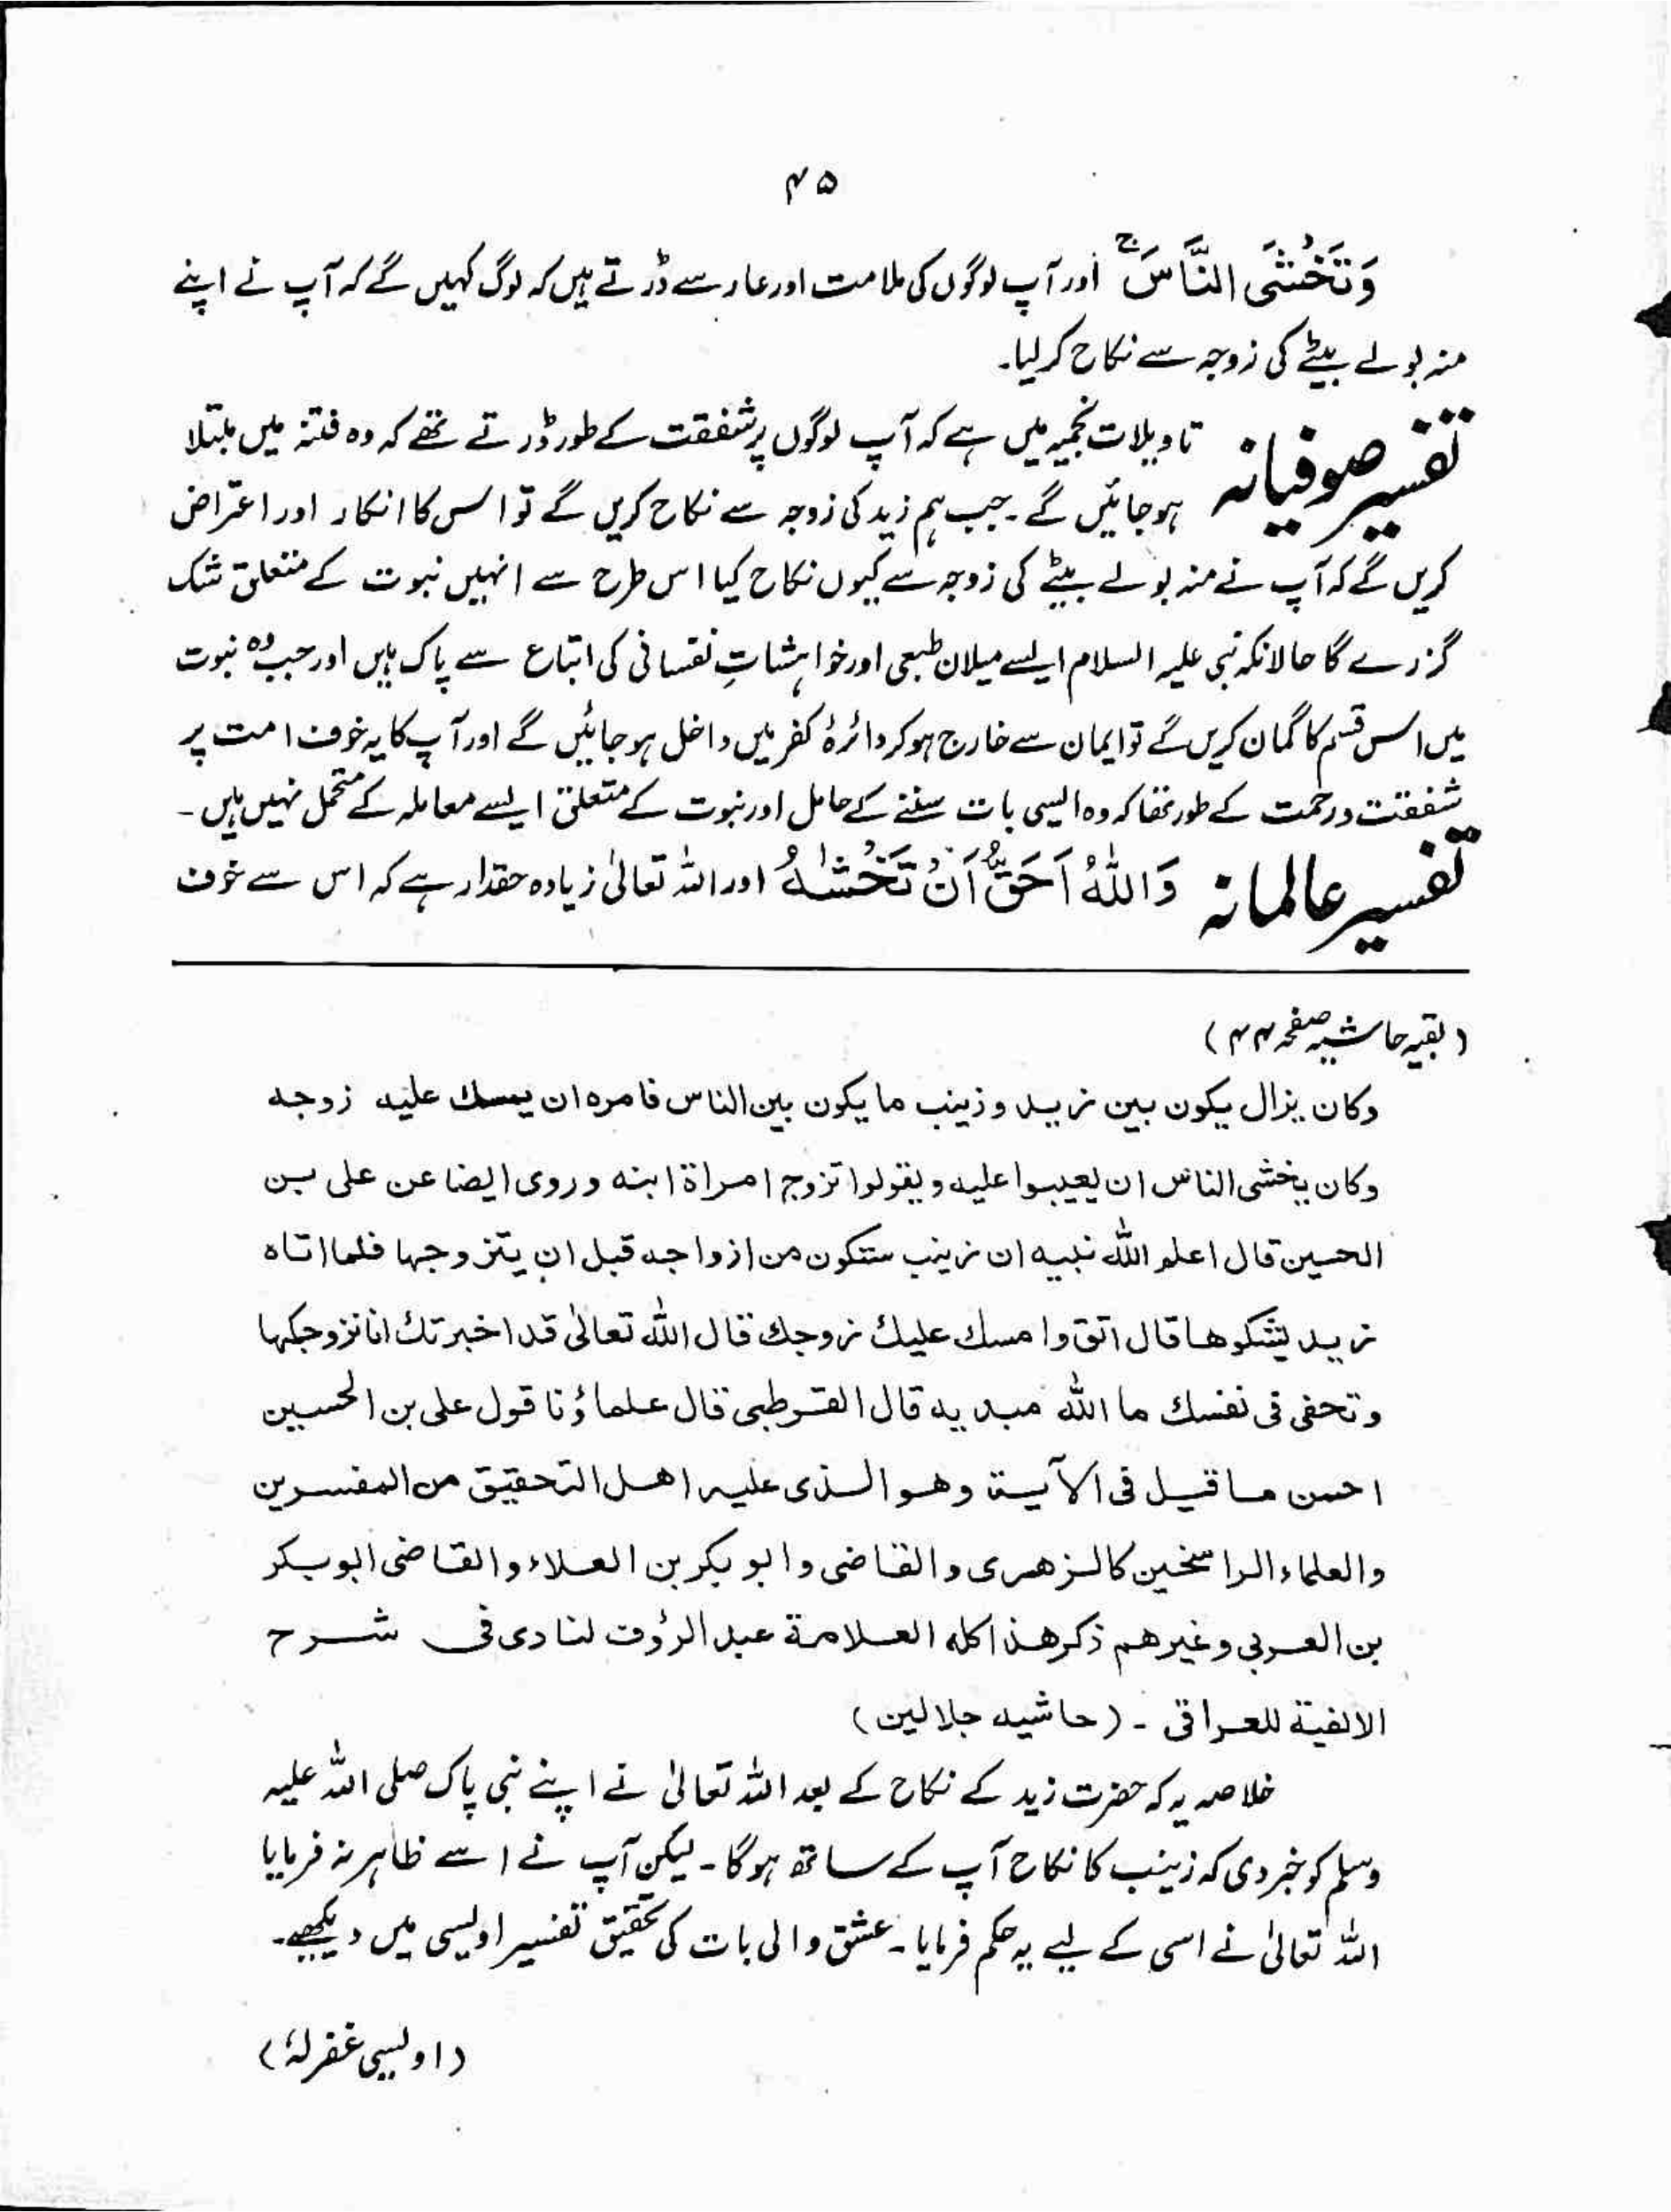 ۴۵
وَتَخْشَى النَّاسَ ۚ اور آپ لوگوں کی ملامت اور عار سے ڈرتے ہیں کہ لوگ کہیں گے کہ آپ نے اپنے
منہ بولے بیٹے کی زوجہ سے نکاح کر لیا۔
تفسیر صوفیانہ تاویلات نجمیہ میں ہے کہ آپ لوگوں پر شفقت کے طور ڈرتے تھے کہ وہ فتنہ میں مبتلا
ہو جائیں گے۔ جب ہم زید کی زوجہ سے نکاح کریں گے تو اس کا انکار اور اعتراض
کریں گے کہ آپ نے منہ بولے بیٹے کی زوجہ سے کیوں نکاح کیا اس طرح سے انہیں نبوت کے متعلق شک
گزرے گا حالانکہ نبی علیہ السلام ایسے میلان طبعی اور خواہشاتِ نفسانی کی اتباع سے پاک ہیں اور جب وہ نبوت
میں اس قسم کا گمان کریں گے تو ایمان سے خارج ہو کر دائرۂ کفر میں داخل ہو جائیں گے اور آپ کا یہ خوف امت پر
شفقت و رحمت کے طور تھا کہ وہ ایسی بات سننے کے حامل اور نبوت کے متعلق ایسے معاملہ کے متحمل نہیں ہیں۔
تفسیر عالمانہ وَاللّٰهُ اَحَقُّ اَنْ تَخْشٰهُ اور اللہ تعالیٰ زیادہ حقدار ہے کہ اس سے خوف
(بقیہ حاشیہ صفحہ ۴۴)
وكان يزال يكون بين زيد و زينب ما يكون بين الناس فامره ان يمسك عليه زوجه
وكان يخشى الناس ان يعيبوا عليه و يقولوا تزوج امراة ابنه و روى ايضا عن على بن
الحسين قال اعلم الله نبيه ان زينب ستكون من ازواجه قبل ان يتزوجها فلما اتاه
زيد يشكوها قال اتق وامسك عليك زوجك قال الله تعالىٰ قد اخبرتك انا نزوجكها
و تحفى فى نفسك ما الله مبديه قال القرطبى قال علماؤنا قول على بن الحسين
احسن ما قيل فى الآية وهو الذى عليه اهل التحقيق من المفسرين
والعلماء الراسخين كالزهرى والقاضى وابو بكر بن العلاء والقاضى ابوبكر
بن العربى وغيرهم ذكر هذا كله العلامة عبد الرؤف لنادى فى شرح
الالفية للعراقى ۔ (حاشيه جلالين)
خلاصہ یہ کہ حضرت زید کے نکاح کے بعد اللہ تعالیٰ نے اپنے نبی پاک صلی اللہ علیہ
وسلم کو خبر دی کہ زینب کا نکاح آپ کے ساتھ ہو گا۔ لیکن آپ نے اسے ظاہر نہ فرمایا
اللہ تعالیٰ نے اسی کے لیے یہ حکم فرمایا۔ عشق والی بات کی تحقیق تفسیر اویسی میں دیکھیے۔
(اویسی غفرلہٗ)